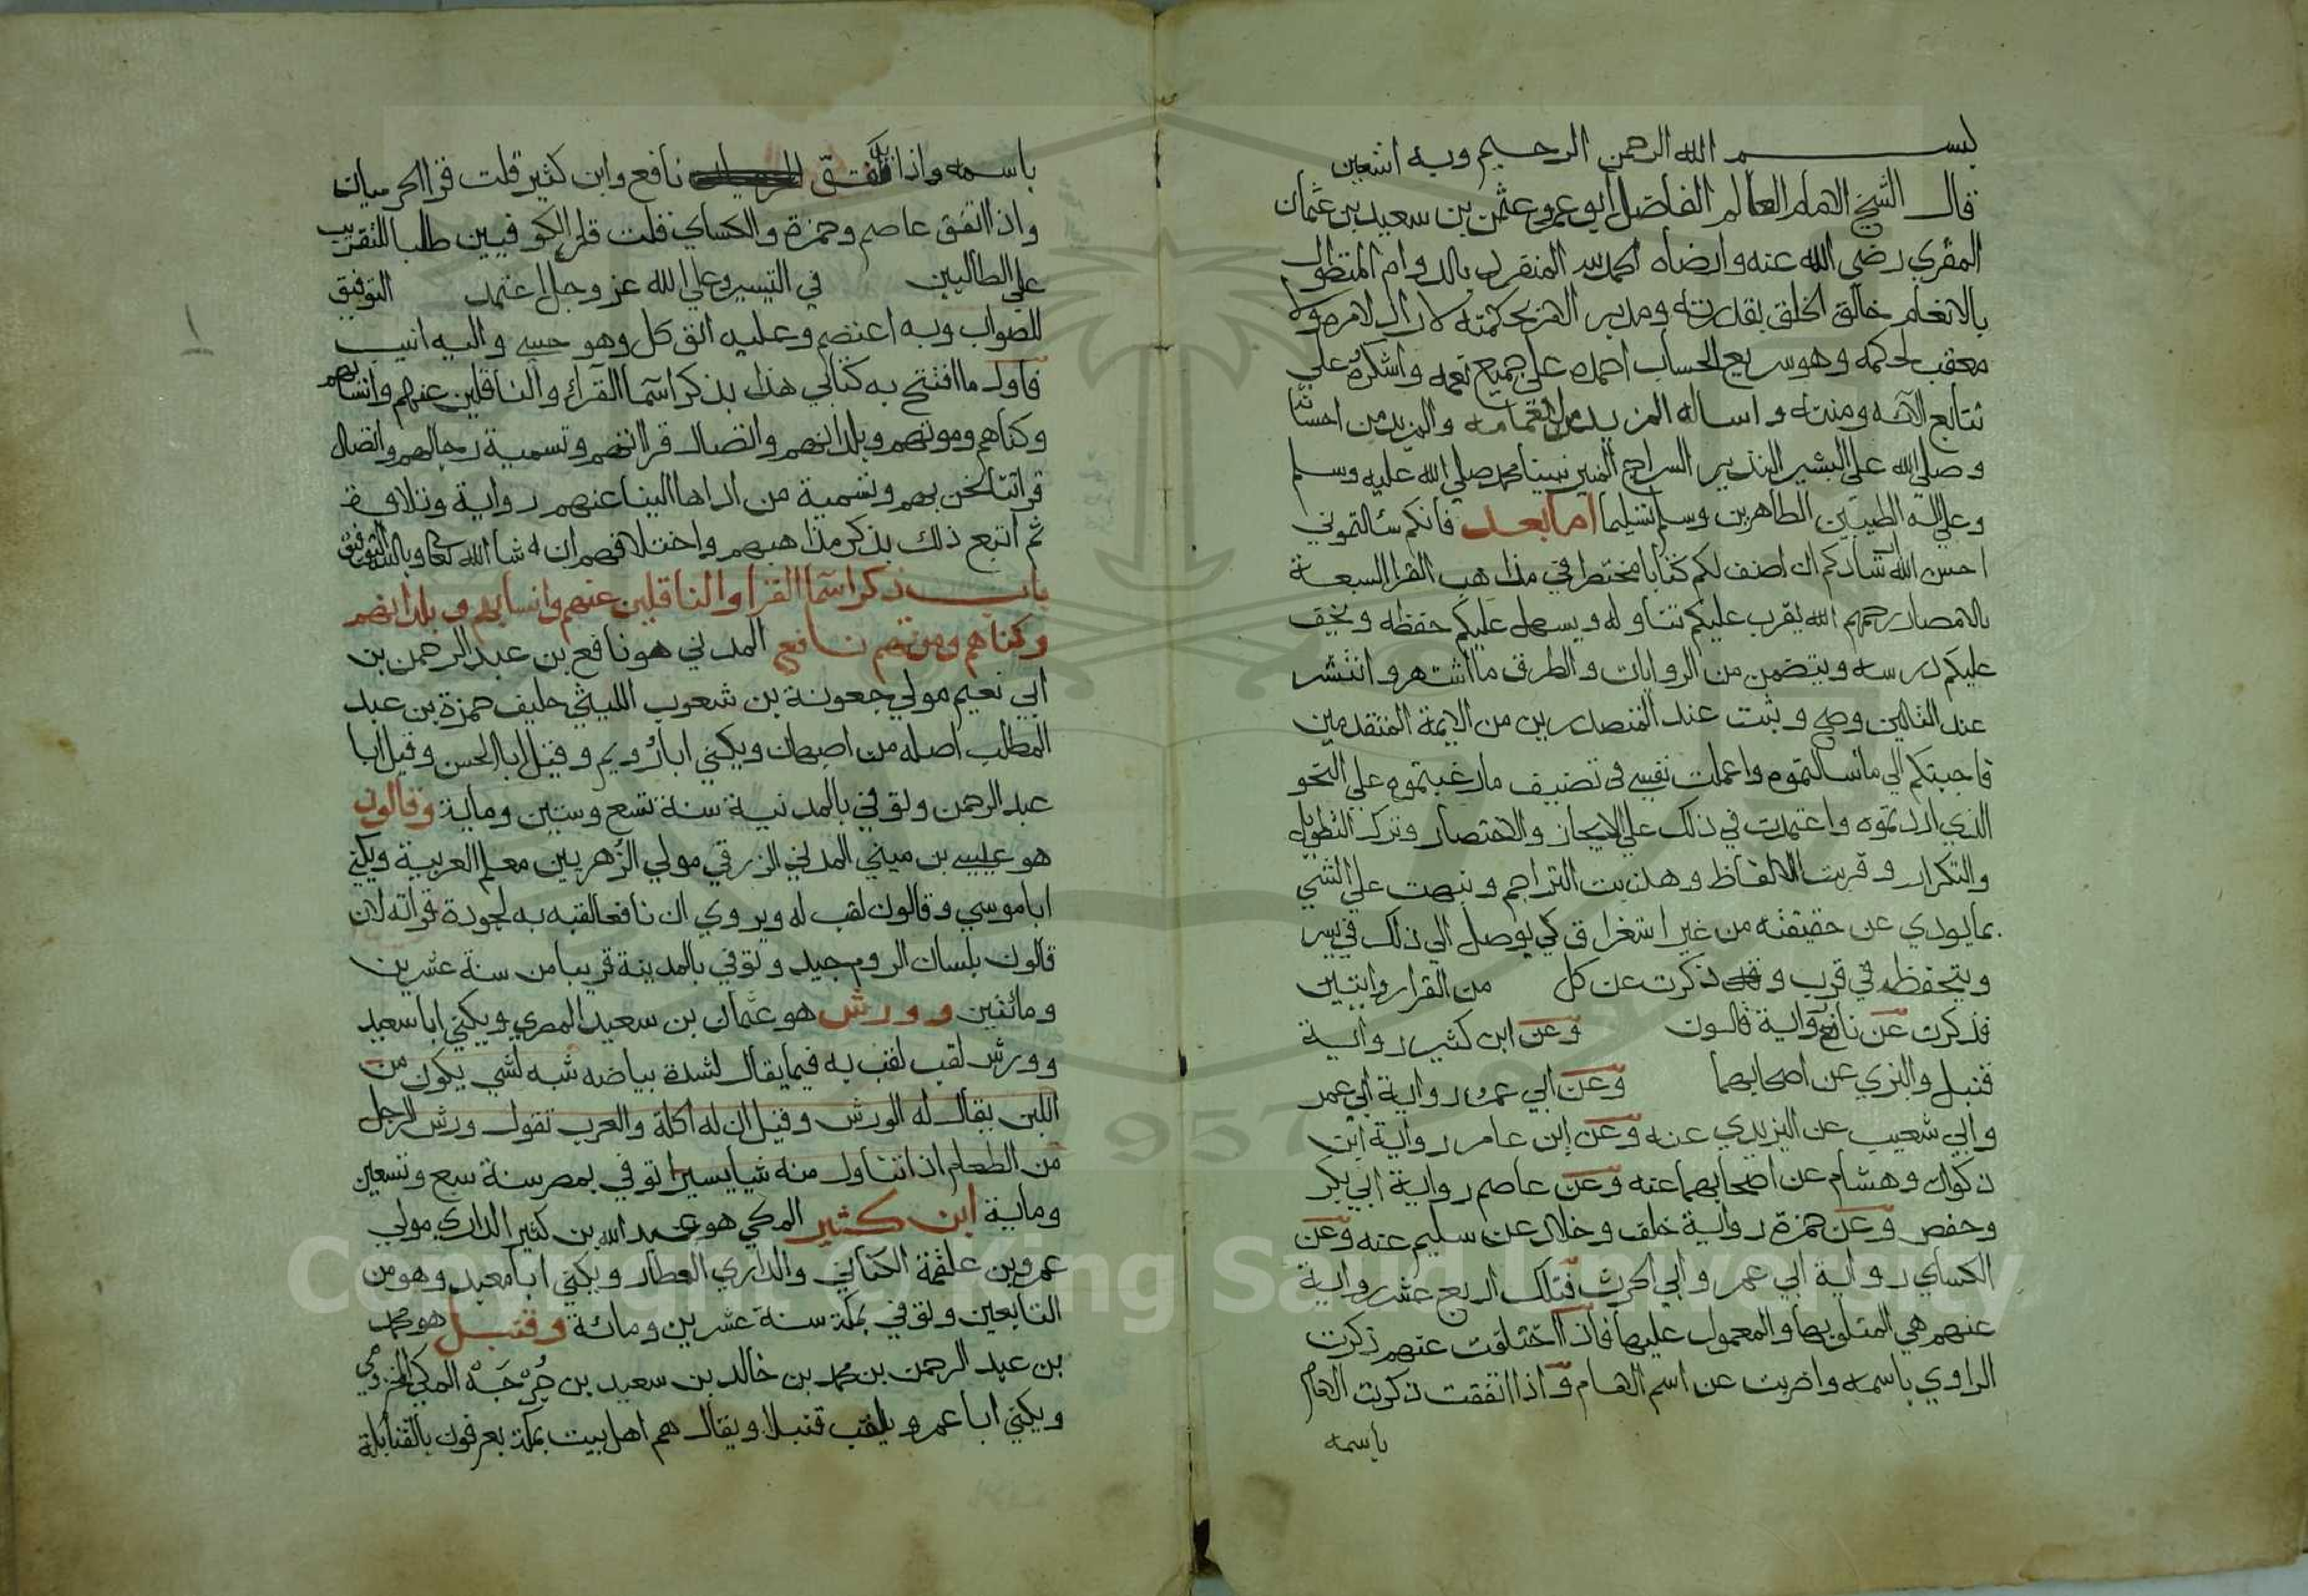 بســـم الله الرحمن الرحيم وبه استعين
قال الشيخ الامام العالم الفاضل ابو عمرو عثمن بن سعيد بن عثمان
المقري رضي الله عنه وارضاه الحمد لله المنفرد بالدوام المتطول
بالانعام خالق الخلق بقدرته ومدبر الامر بحكمته لا راد لامره ولا
معقب لحكمه وهو سريع الحساب احمده علي جميع نعمه واشكره علي
تتابع الآئه ومننه واساله المزيد من انعامه والمزيد من احسانه
وصلي الله علي البشير النذير السراج المنير نبينا محمد صلي الله عليه وسلم
وعلي اله الطيبين الطاهرين وسلم تسليما اما بعد فانكم سئالتموني
احسن الله ارشادكم ان اصنف لكم كتابا مختصرا في مذاهب القرا السبعة
بالامصار رحمهم الله يقرب عليكم تناوله ويسهل عليكم حفظه ويخف
عليكم درسه ويتضمن من الروايات والطرق ما اشتهر وانتشر
عند التالين وصح وثبت عند المتصدرين من الايمة المتقدمين
فاجبتكم الي ما سالتموه واعملت نفسي في تصنيف ما رغبتموه علي النحو
الذي اردتموه واعتمدت في ذلك علي الايجاز والاختصار وترك التطويل
والتكرار وقربت الالفاظ وهذبت التراجم ونبهت علي الشي
بما يودي عن حقيقته من غير استغراق كي يوصل الي ذلك في يسر
ويتحفظ في قرب و ذكرت عن كل من القرا روايتين
فذكرت عن نافع رواية قالون وعن ابن كثير رواية
قنبل والبزي عن اصحابهما وعن ابي عمرو رواية ابي عمر
وابي شعيب عن اليزيدي عنه وعن ابن عامر رواية ابن
ذكوان وهشام عن اصحابهما عنه وعن عاصم رواية ابي بكر
وحفص وعن حمزة رواية خلف وخلاد عن سليم عنه وعن
الكساي رواية ابي عمر وابي الحرث فتلك اربع عشر رواية
عنهم هي المتلو بها والمعمول عليها فاذا اختلفت عنهم ذكرت
الراوي باسمه واضربت عن اسم الامام واذا اتفقت ذكرت الامام
باسمه
باسمه واذا اتفق نافع وابن كثير قلت قرا الحرميان
واذا اتفق عاصم وحمزة والكساي قلت قرا الكوفيين طلبا للتقريب
علي الطالبين في التيسير وعلي الله عز وجل اعتمد التوفيق
للصواب وبه اعتصم وعليه اتوكل وهو حسبي واليه انيب
فاول ما افتتح به كتابي هذا بذكر اسما القرآء والناقلين عنهم وانسابهم
وكناهم وموتهم وبلدانهم واتصال قراتهم وتسمية رجالهم واتصال
قراتنا نحن بهم وتسمية من اداها الينا عنهم رواية وتلاوة
ثم اتبع ذلك بذكر مذاهبهم واختلافهم ان شا الله تعا وبالله التوفيق
باب ذكر اسما القرا والناقلين عنهم وانسابهم وبلدانهم
وكناهم وموتهم نافع المدني هو نافع بن عبد الرحمن بن
ابي نعيم مولي جعونة بن شعوب الليثي حليف حمزة بن عبد
المطلب اصله من اصبهان ويكني ابا رويم وقيل ابا الحسن وقيل ابا
عبد الرحمن وتوفي بالمدنية سنة تسع وستين ومایة وقالون
هو عيسي بن ميني المدني الزرقي مولي الزهريين معلم العربية ويكني
ابا موسي وقالون لقب له ويروي ان نافعا لقبه به لجودة قراته لان
قالون بلسان الروم جيد وتوفي بالمدينة قريبا من سنة عشرين
ومائتين وورش هو عثمان بن سعيد المصري ويكني ابا سعيد
وورش لقب لقب به فيما يقال لشدة بياضه شبه لشي يكون من
اللبن يقال له الورش وقيل ان له اكلة والعرب تقول ورش الرجل
من الطعام اذا تناول منه شيا يسيرا توفي بمصر سنة سبع وتسعين
وماية ابن كثير المكي هو عبد الله بن كثير الداري مولي
عمرو بن علقمة الكناني والداري العطار ويكني ابا معبد وهو من
التابعين وتوفي بمكة سنة عشرين ومائة وقنبل هو محمد
بن عبد الرحمن بن محمد بن خالد بن سعيد بن جُرْجَه المكي المخزومي
ويكني ابا عمرو ويلقب قنبلا ويقال هم اهل بيت بمكة يعرفون بالقنابلة
١
1957
Copyright © King Saud University